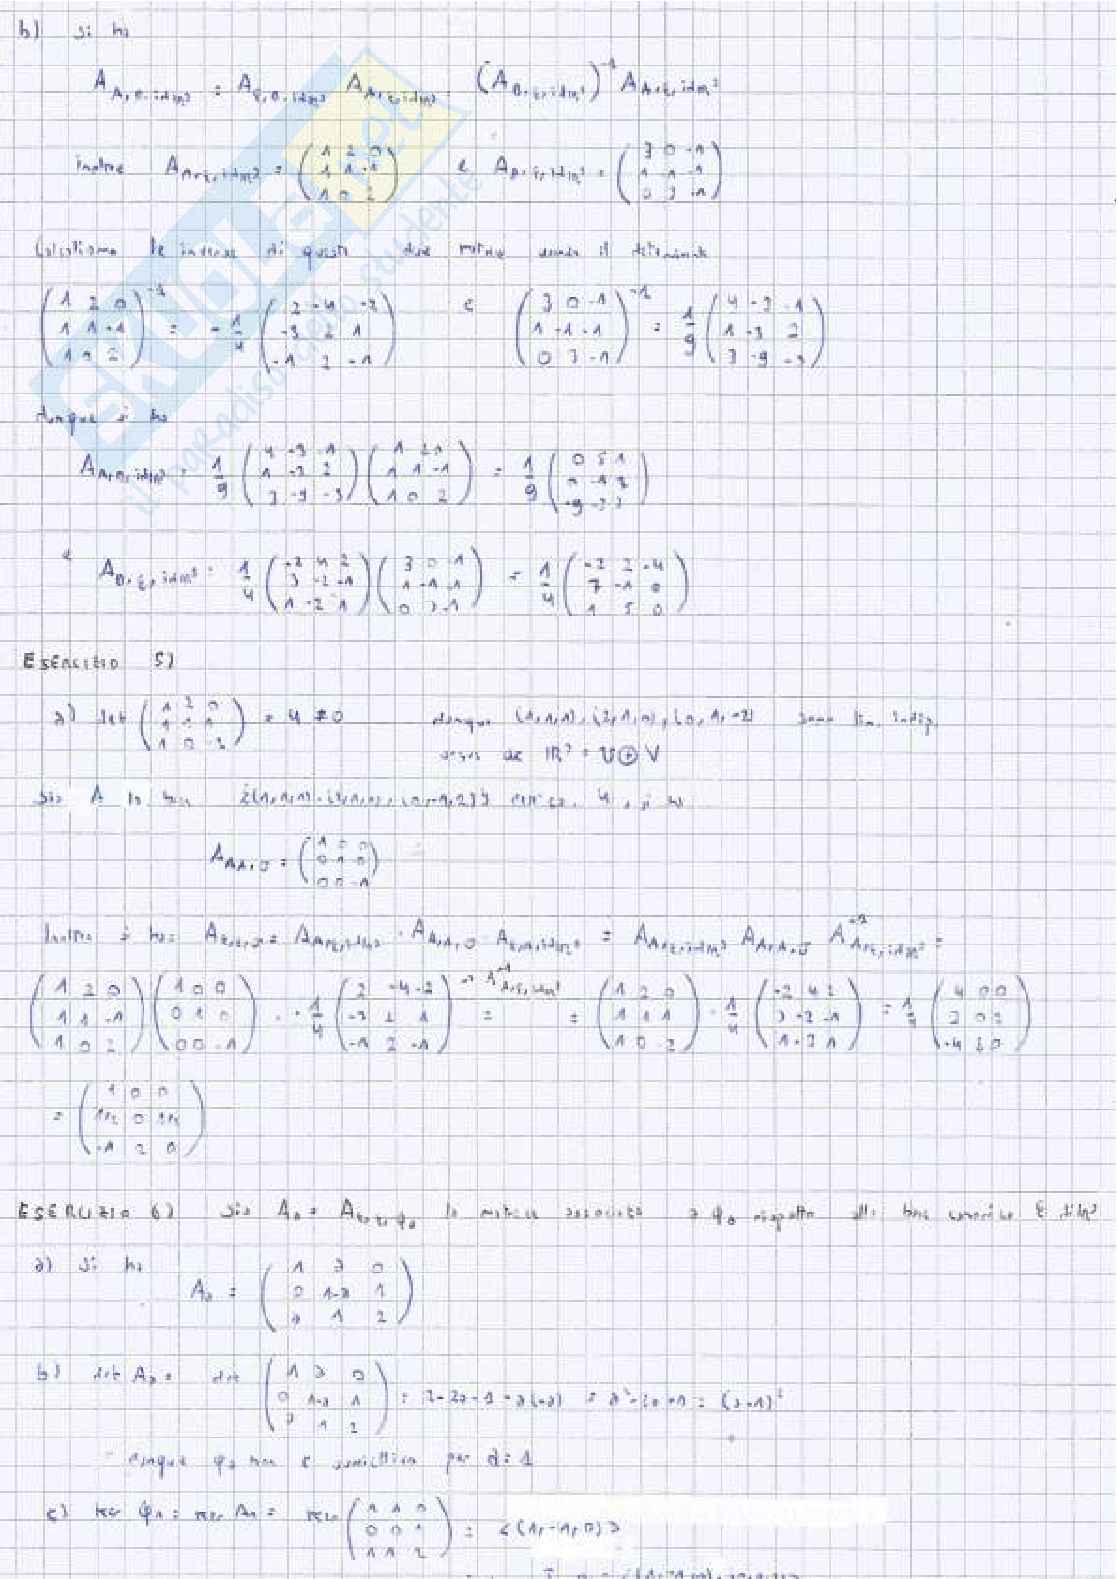 b) si ha
A_{A,B,idR³} = A_{E,B,idR³} A_{A,E,idR³} = (A_{B,E,idR³})^{-1} A_{A,E,idR³}
inoltre A_{A,E,idR³} = (1 2 0 / 1 1 -1 / 1 0 2) e A_{B,E,idR³} = (3 0 -1 / 1 -1 -1 / 0 3 -1)
Calcoliamo le inverse di queste due matrici usando il determinante
(1 2 0 / 1 1 -1 / 1 0 2)^{-1} = -1/4 (2 -4 -2 / -3 2 1 / -1 2 -1) e (3 0 -1 / 1 -1 -1 / 0 3 -1)^{-1} = 1/9 (4 -3 -1 / 1 -3 2 / 3 -9 -3)
dunque si ha
A_{A,B,idR³} = 1/9 (4 -3 -1 / 1 -3 2 / 3 -9 -3) (1 2 0 / 1 1 -1 / 1 0 2) = 1/9 (0 5 1 / 0 -1 / -9 -3)
e A_{B,E,idR³} = 1/4 (-2 4 2 / 3 -2 -1 / 1 -2 1) (3 0 -1 / 1 -1 -1 / 0 3 -1) = 1/4 (-2 2 -4 / 7 -1 0 / 1 5 0)
ESERCIZIO 5)
a) det (1 2 0 / 1 1 1 / 1 0 -2) = 4 ≠ 0 dunque (1,1,1), (2,1,0), (0,1,-2) sono lin. indip.
R³ = U ⊕ V
Sia A la base {(1,1,1), (2,1,0), (0,-1,2)}, si ha
A_{A,A,σ} = (1 0 0 / 0 1 0 / 0 0 -1)
Inoltre si ha: A_{E,E,σ} = A_{A,E,idR³} · A_{A,A,σ} A_{E,A,idR³} = A_{A,E,idR³} A_{A,A,σ} A^{-1}_{A,E,idR³} =
(1 2 0 / 1 1 -1 / 1 0 2) (1 0 0 / 0 1 0 / 0 0 -1) · -1/4 (2 -4 -2 / -3 2 1 / -1 2 -1) → A^{-1}_{A,E,idR³} = = (1 2 0 / 1 1 1 / 1 0 -2) · 1/4 (-2 4 2 / 3 -2 -1 / 1 -2 1) = 1/4 (4 0 0 / 2 0 2 / -4 8 0)
= (1 0 0 / 1/2 0 1/2 / -1 2 0)
ESERCIZIO 6) Sia A_a = A_{E,E,φa} la matrice associata a φ_a rispetto alla base canonica E di R³
a) Si ha
A_a = (1 a 0 / 0 1-a 1 / a 1 2)
b) det A_a = det (1 a 0 / 0 1-a 1 / a 1 2) = 2-2a-1-a(-a) = a²-2a+1 = (a-1)²
dunque φ_a non è suriettiva per a=1
c) ker φ_1 = ker A_1 = ker (1 1 0 / 0 0 1 / 1 1 2) = <(1,-1,0)>
SKUOLA.net
il paradiso dello studente